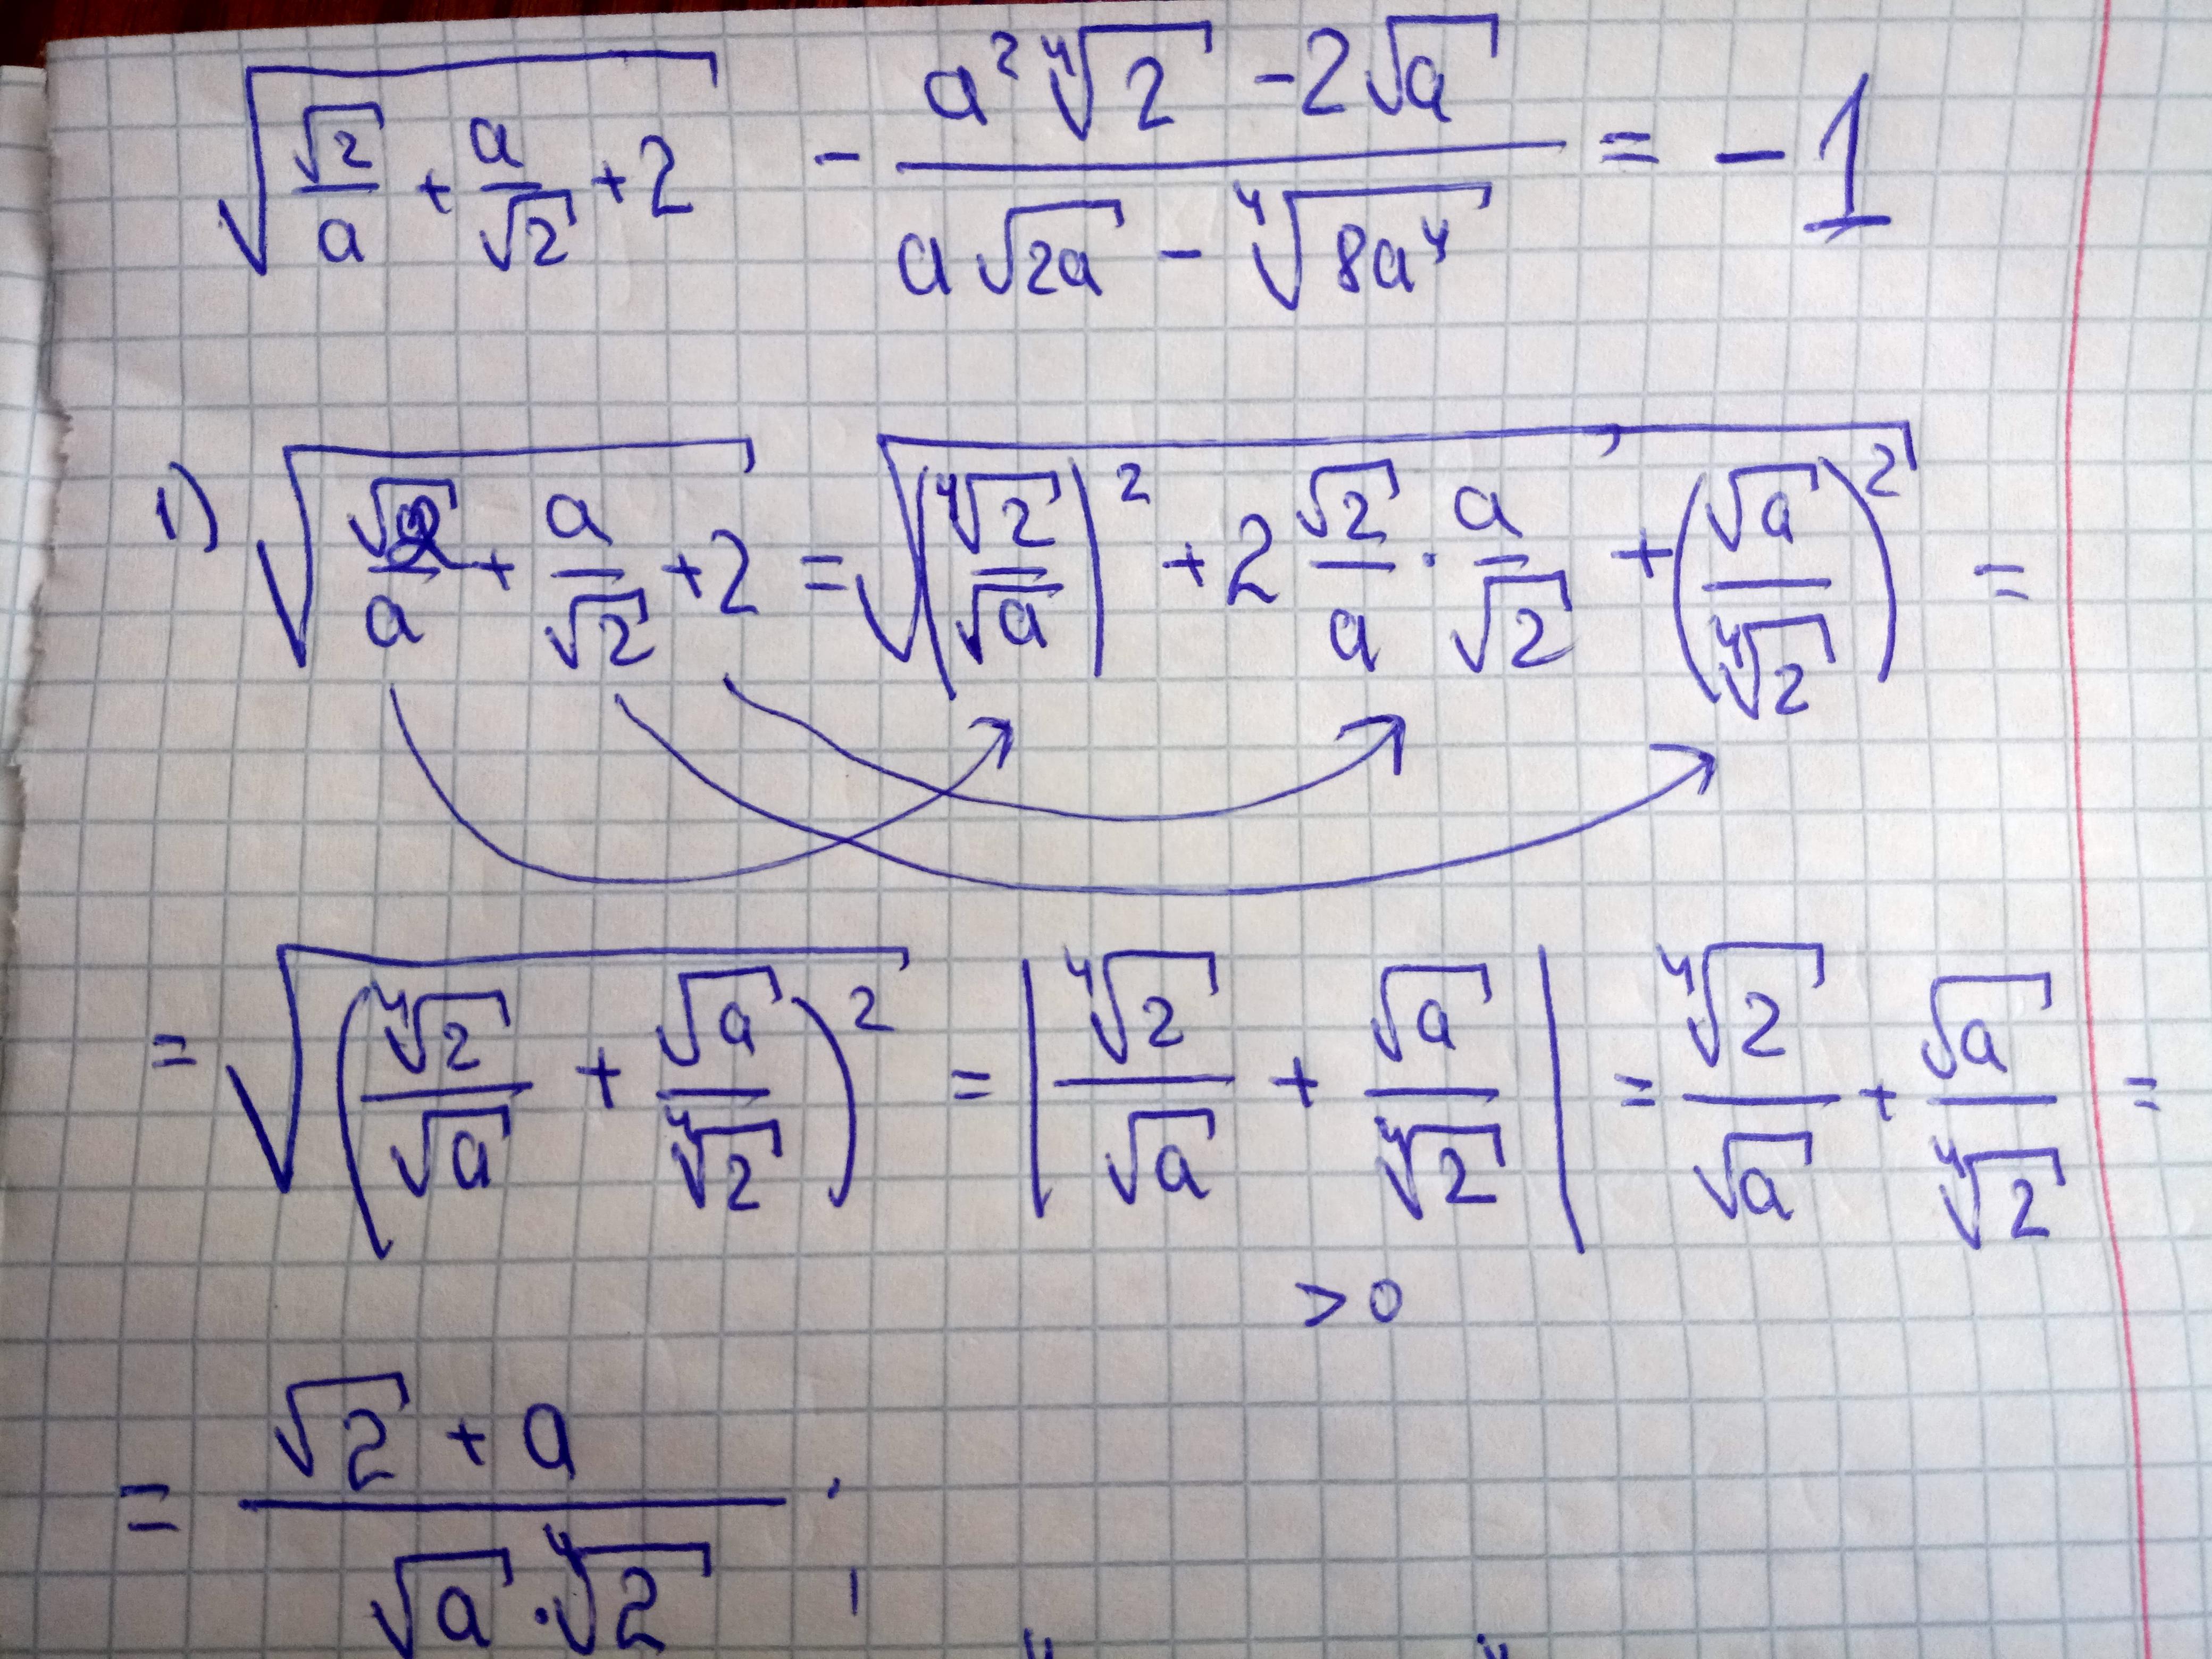 √(√2/a + a/√2 + 2) - (a² ⁴√2 - 2√a)/(a√2a - ⁴√8a⁴) = -1
1) √(√2/a + a/√2 + 2) = √((⁴√2/√a)² + 2 √2/a · a/√2 + (√a/⁴√2)²) =
= √((⁴√2/√a + √a/⁴√2)²) = |⁴√2/√a + √a/⁴√2| = ⁴√2/√a + √a/⁴√2 =
>0
= (√2 + a)/(√a · ⁴√2) ;